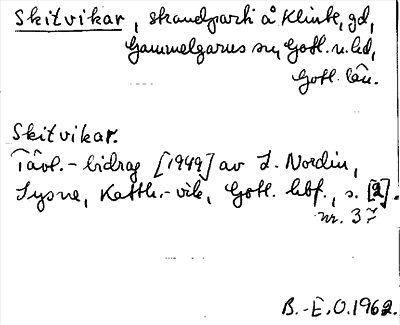 Skitvikar, strandparti å Klinte, gd,
Gammelgarns sn, Gotl. n. hd,
Gotl. län.
Skitvikar.
Tävl.-bidrag [1949] av L. Nordin,
Sysne, Katth.-vik, Gotl. hbf., s. [2].
nr. 37
B.-E.O. 1962.